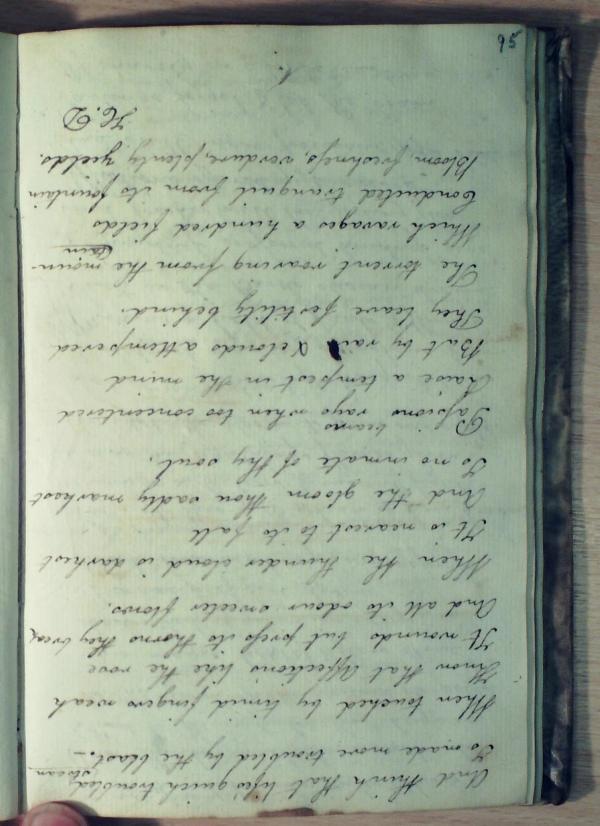 And think that life's quick troubled
stream
Is made more troubled by the blast.—
When touched by timid fingers weak
Know that affections like the rose
It wounds but press its thorns they break
And all its odour sweeter flows.
When the thunder cloud is darkest
It is nearest to its fall
And the gloom thou sadly markest
Is no inmate of thy soul.
beams
Passions rays when too concentered
Raise a tempest in the mind
But by rain & clouds attempered
They leave fertility behind.
The torrent roaring from the moun-
tain
Which ravages a hundred fields
Conducted tranquil from its fountain
Bloom, freshness, verdure, plenty yields.
95